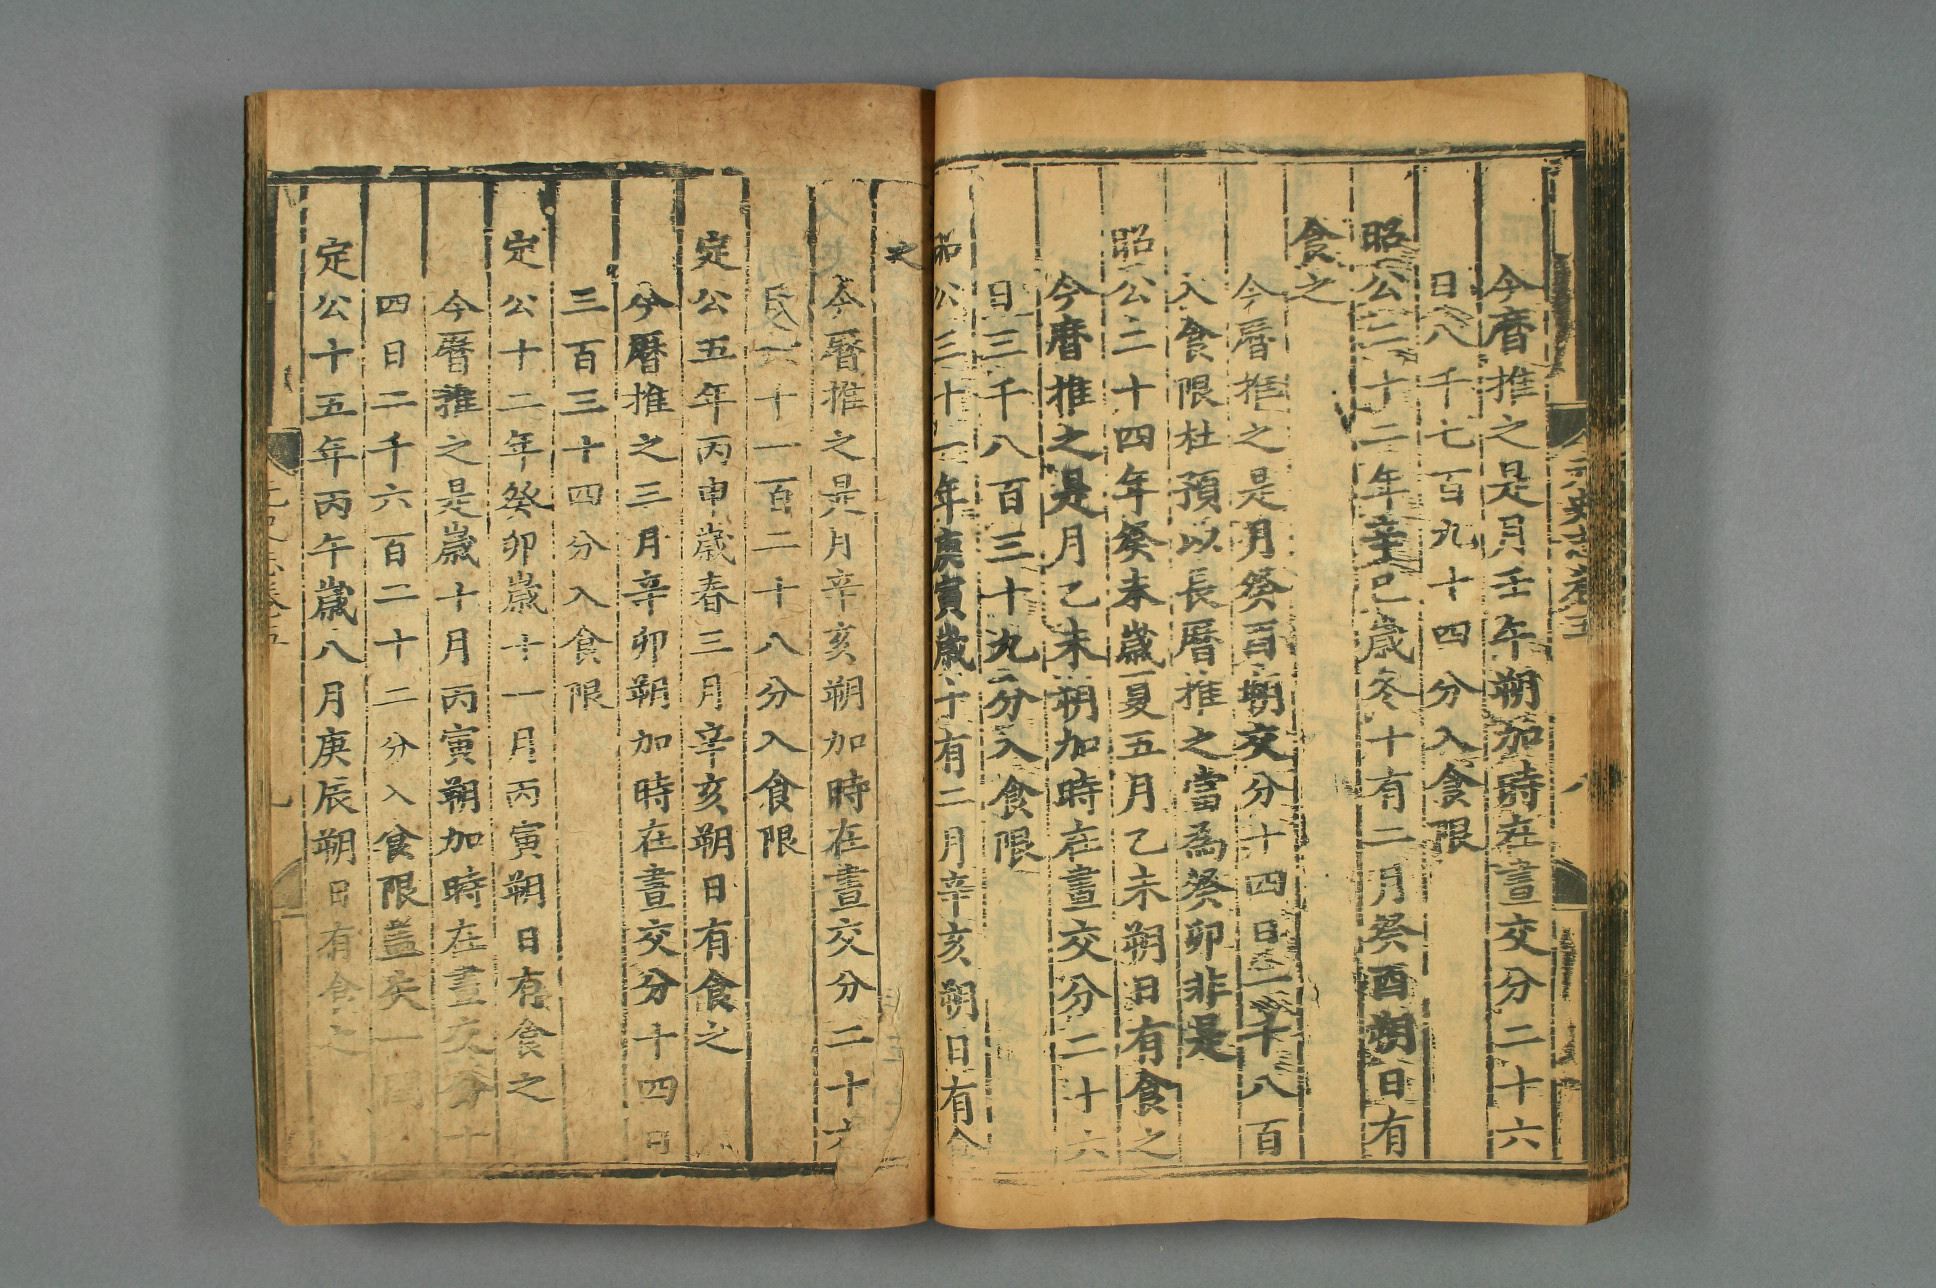 今曆推之是月壬午朔加時在晝交分二十六
日八千七百九十四分入食限
昭公二十二年辛巳歲冬十有二月癸酉朔日有
食之
今曆推之是月癸酉朔交分十四日一千八百
入食限杜預以長曆推之當為癸卯非是
昭公二十四年癸未歲夏五月乙未朔日有食之
今曆推之是月乙未朔加時在晝交分二十六
日三千八百三十九分入食限
昭公三十一年庚寅歲十有二月辛亥朔日有食
之
今曆推之是月辛亥朔加時在晝交分二十六
日六千一百二十八分入食限
定公五年丙申歲春三月辛亥朔日有食之
今曆推之三月辛卯朔加時在晝交分十四日
三百三十四分入食限
定公十二年癸卯歲十一月丙寅朔日有食之
今曆推之是歲十月丙寅朔加時在晝交分十
四日二千六百二十二分入食限蓋失一閏
定公十五年丙午歲八月庚辰朔日有食之
元史志卷五
八